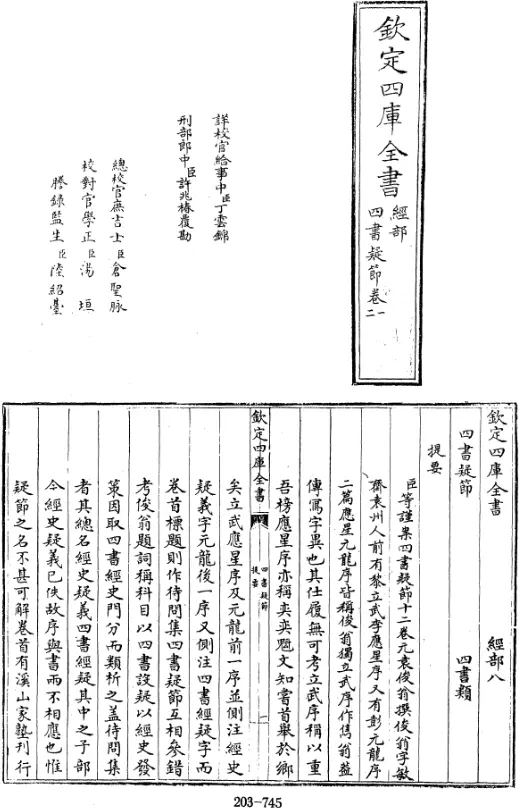 欽定四庫全書
經部
四書疑節卷一
二
詳校官給事中臣丁雲錦
刑部郎中臣許兆椿覆勘
總校官庶吉士臣倉聖脉
校對官學正臣湯垣
謄錄監生臣陸紹臺
欽定四庫全書
經部八
四書疑節
四書類
提要
臣等謹案四書疑節十二卷元袁俊翁撰俊翁字敏
齋袁州人前有黎立武李應星序又有彭元龍序
二篇應星元龍序皆稱俊翁獨立武序作雋翁蓋
傳寫字異也其仕履無可考立武序稱以重
吾榜應星序亦稱奕奕魁文知嘗首舉於鄉
欽定四庫全書
四書疑節
提要
一
矣立武應星序及元龍前一序並側注經史
疑義字元龍後一序又側注四書經疑字而
卷首標題則作待問集四書疑節互相參錯
考俊翁題詞稱科目以四書設疑以經史發
策因取四書經史門分而類析之蓋待問集
者其總名經史疑義四書經疑其中之子部
今經史疑義已佚故序與書兩不相應也惟
疑節之名不甚可解卷首有溪山家塾刊行
203-745